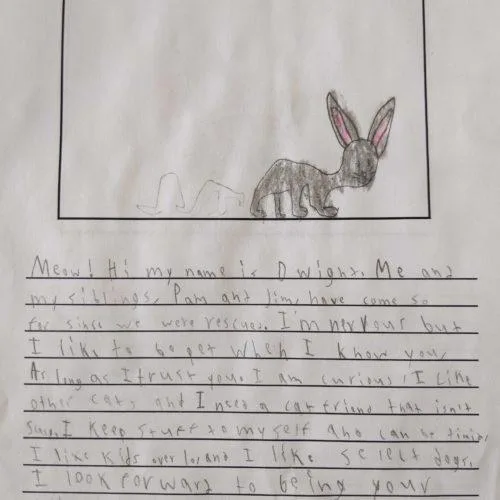 Meow! Hi my name is Dwight. Me and
my siblings, Pam and Jim, have come so
far since we were rescued. I'm nervous but
I like to be pet when I know you,
As long as I trust you. I am curious, I like
other cats and I need a cat friend that isn't
I keep stuff to myself and can be timid.
I like kids over 10, and I like select dogs.
I look forward to being your